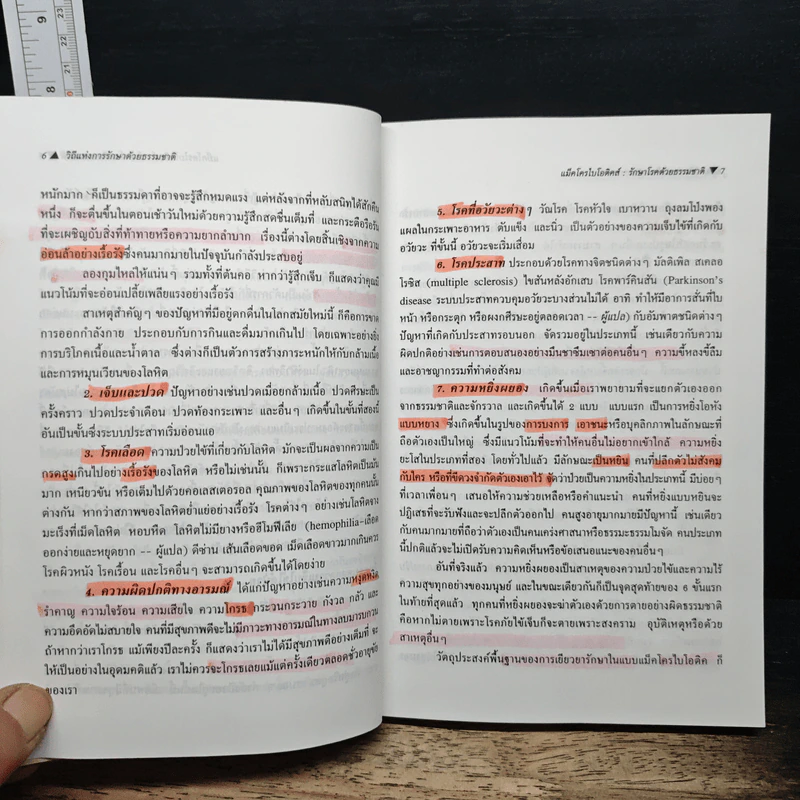 9
8
23
22
21
6 ▲ วิถีแห่งการรักษาด้วยธรรมชาติ
หนักมาก ก็เป็นธรรมดาที่อาจจะรู้สึกหมดแรง แต่หลังจากที่หลับสนิทได้สักคืน
หนึ่ง ก็จะตื่นขึ้นในตอนเช้าวันใหม่ด้วยความรู้สึกสดชื่นเต็มที่ และกระตือรือร้น
ที่จะเผชิญกับสิ่งที่ท้าทายหรือความยากลำบาก เรื่องนี้ต่างโดยสิ้นเชิงจากความ
อ่อนล้าอย่างเรื้อรังซึ่งคนมากมายในปัจจุบันกำลังประสบอยู่
ลองกุมไหล่ให้แน่นๆ รวมทั้งที่ต้นคอ หากว่ารู้สึกเจ็บ ก็แสดงว่าคุณมี
แนวโน้มที่จะอ่อนเปลี้ยเพลียแรงอย่างเรื้อรัง
สาเหตุสำคัญๆ ของปัญหาที่มีอยู่ดกดื่นในโลกสมัยใหม่นี้ ก็คือการขาด
การออกกำลังกาย ประกอบกับการกินและดื่มมากเกินไป โดยเฉพาะอย่างยิ่ง
การบริโภคเนื้อและน้ำตาล ซึ่งต่างก็เป็นตัวการสร้างภาระหนักให้กับกล้ามเนื้อ
และการหมุนเวียนของโลหิต
2. เจ็บและปวด ปัญหาอย่างเช่นปวดเมื่อยกล้ามเนื้อ ปวดศีรษะเป็น
ครั้งคราว ปวดประจำเดือน ปวดท้องกระเพาะ และอื่นๆ เกิดขึ้นในขั้นที่สองนี้
อันเป็นขั้นซึ่งระบบประสาทเริ่มอ่อนแอ
3. โรคเลือด ความป่วยไข้ที่เกี่ยวกับโลหิต มักจะเป็นผลจากความเป็น
กรดสูงเกินไปอย่างเรื้อรังของโลหิต หรือไม่เช่นนั้น ก็เพราะกระแสโลหิตเป็นมัน
มาก เหนียวข้น หรือเต็มไปด้วยคอเลสเตอรอล คุณภาพของโลหิตของทุกคนนั้น
ต่างกัน หากว่าสภาพของโลหิตย่ำแย่อย่างเรื้อรัง โรคต่างๆ อย่างเช่นโลหิตจาง
มะเร็งที่เม็ดโลหิต หอบหืด โลหิตไม่มียางหรือฮีโมฟีเลีย (hemophilia-เลือด
ออกง่ายและหยุดยาก -- ผู้แปล) ดีซ่าน เส้นเลือดขอด เม็ดเลือดขาวมากเกินควร
โรคผิวหนัง โรคเรื้อน และโรคอื่นๆ จะสามารถเกิดขึ้นได้โดยง่าย
4. ความผิดปกติทางอารมณ์ ได้แก่ปัญหาอย่างเช่นความหงุดหงิด
รำคาญ ความใจร้อน ความเสียใจ ความโกรธ กระวนกระวาย กังวล กลัว และ
ความอึดอัดไม่สบายใจ คนที่มีสุขภาพดีจะไม่มีภาวะทางอารมณ์ในทางลบมารบกวน
ถ้าหากว่าเราโกรธ แม้เพียงปีละครั้ง ก็แสดงว่าเราไม่ได้มีสุขภาพดีอย่างเต็มที่ จะ
ให้เป็นอย่างในอุดมคติแล้ว เราไม่ควรจะโกรธเลยแม้แต่ครั้งเดียวตลอดชั่วอายุขัย
ของเรา
แม็คโครไบโอติคส์ : รักษาโรคด้วยธรรมชาติ ▼ 7
5. โรคที่อวัยวะต่างๆ วัณโรค โรคหัวใจ เบาหวาน ถุงลมโป่งพอง
แผลในกระเพาะอาหาร ตับแข็ง และนิ่ว เป็นตัวอย่างของความเจ็บไข้ที่เกิดกับ
อวัยวะ ที่ขั้นนี้ อวัยวะจะเริ่มเสื่อม
6. โรคประสาท ประกอบด้วยโรคทางจิตชนิดต่างๆ มัลติเพิล สเคลอ
โรซิส (multiple sclerosis) ไขสันหลังอักเสบ โรคพาร์คินสัน (Parkinson's
disease ระบบประสาทควบคุมอวัยวะบางส่วนไม่ได้ อาทิ ทำให้มีอาการสั่นที่ใบ
หน้า หรือกระตุก หรือผงกศีรษะอยู่ตลอดเวลา -- ผู้แปล) กับอัมพาตชนิดต่างๆ
ปัญหาที่เกิดกับประสาทรอบนอก จัดรวมอยู่ในประเภทนี้ เช่นเดียวกับความ
ผิดปกติอย่างเช่นการตอบสนองอย่างมึนชาซึมเซาต่อคนอื่นๆ ความขี้หลงขี้ลืม
และอาชญากรรมที่ทำต่อสังคม
7. ความหยิ่งผยอง เกิดขึ้นเมื่อเราพยายามที่จะแยกตัวเองออก
จากธรรมชาติและจักรวาล และเกิดขึ้นได้ 2 แบบ แบบแรก เป็นการหยิ่งโอหัง
แบบหยาง ซึ่งเกิดขึ้นในรูปของการบงการ เอาชนะหรือบุคลิกภาพในลักษณะที่
ถือตัวเองเป็นใหญ่ ซึ่งมีแนวโน้มที่จะทำให้คนอื่นไม่อยากเข้าใกล้ ความหยิ่ง
ยะโสในประเภทที่สอง โดยทั่วไปแล้ว มีลักษณะเป็นหยิน คนที่ปลีกตัวไม่สังคม
กับใคร หรือที่ขีดวงจำกัดตัวเองเอาไว้ จัดว่าป่วยเป็นความหยิ่งในประเภทนี้ มีบ่อยๆ
ที่เวลาเพื่อนๆ เสนอให้ความช่วยเหลือหรือคำแนะนำ คนที่หยิ่งแบบหยินจะ
ปฏิเสธที่จะรับฟังและจะปลีกตัวออกไป คนสูงอายุมากมายมีปัญหานี้ เช่นเดียว
กับคนมากมายที่ถือว่าตัวเองเป็นคนเคร่งศาสนาหรือธรรมะธรรมโมจัด คนประเภท
นี้ปกติแล้วจะไม่เปิดรับความคิดเห็นหรือข้อเสนอแนะของคนอื่นๆ
อันที่จริงแล้ว ความหยิ่งผยองเป็นสาเหตุของความป่วยไข้และความไร้
ความสุขทุกอย่างของมนุษย์ และในขณะเดียวกันก็เป็นจุดสุดท้ายของ 6 ขั้นแรก
ในท้ายที่สุดแล้ว ทุกคนที่หยิ่งผยองจะฆ่าตัวเองด้วยการตายอย่างผิดธรรมชาติ
คือหากไม่ตายเพราะโรคภัยไข้เจ็บก็จะตายเพราะสงคราม อุบัติเหตุหรือด้วย
สาเหตุอื่นๆ
วัตถุประสงค์พื้นฐานของการเยียวยารักษาในแบบแม็คโครไบโอติค ก็